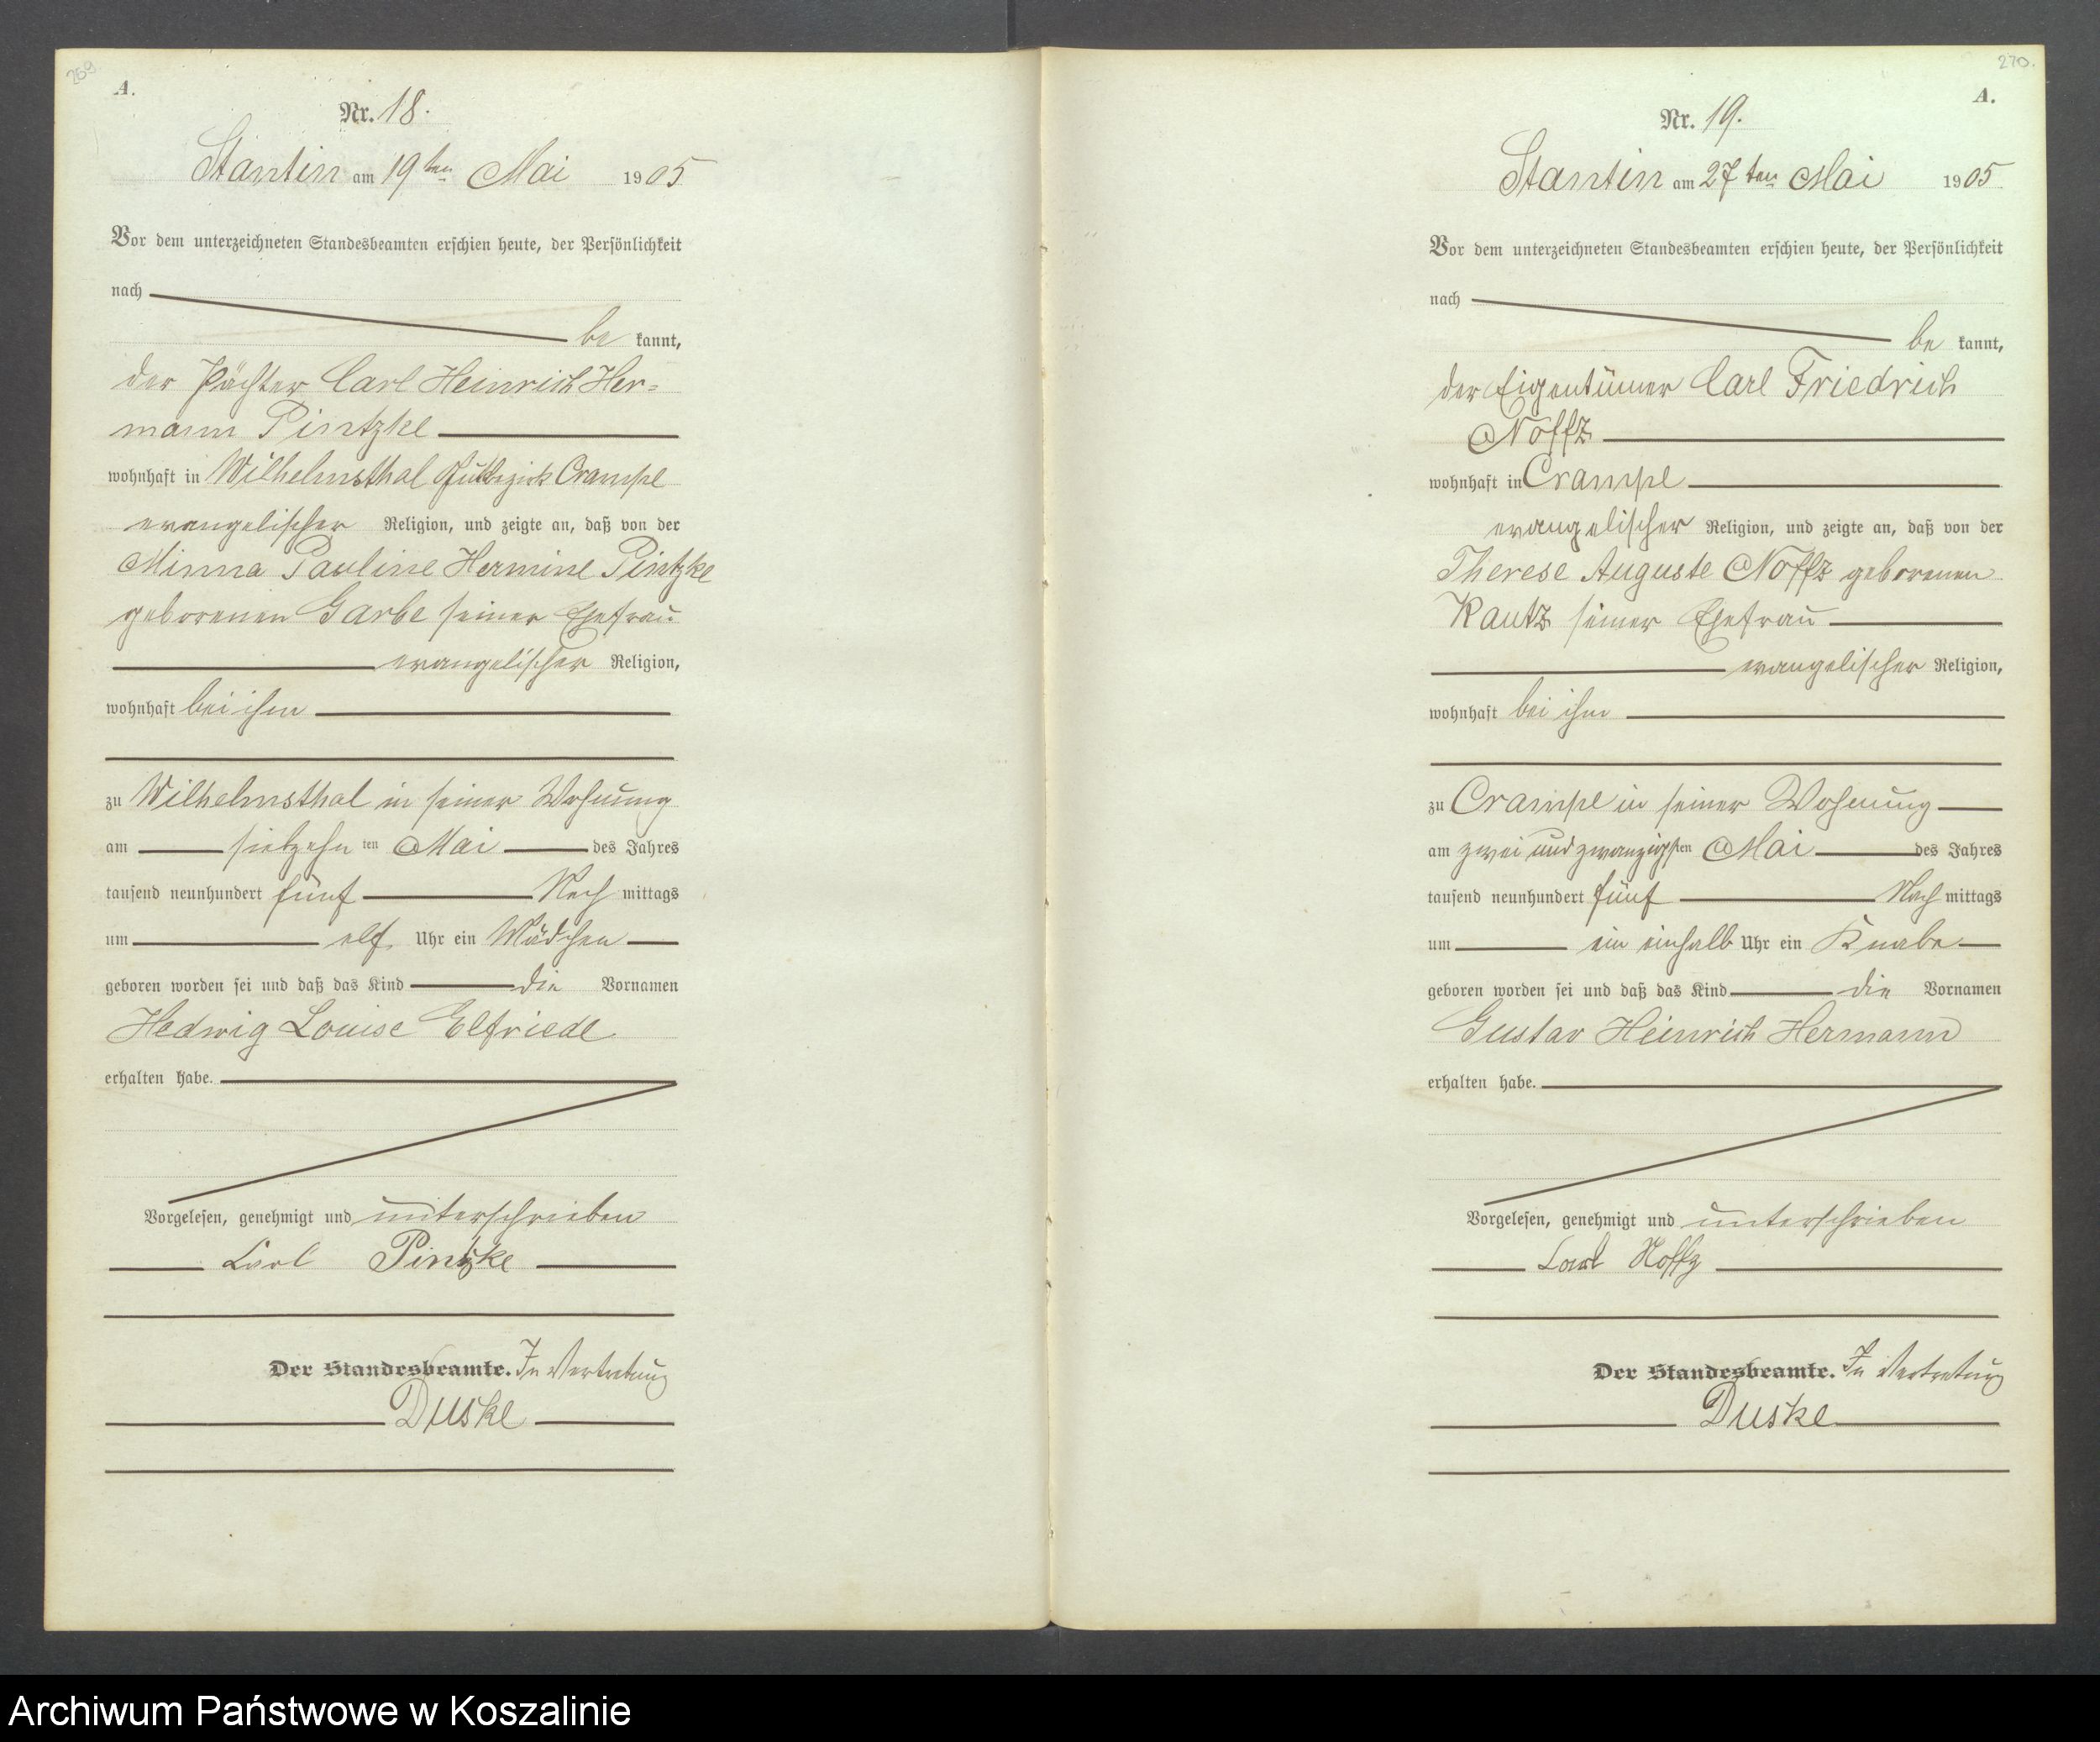 269
A.
Nr. 18.
Stantin am 19ten Mai 1905
Vor dem unterzeichneten Standesbeamten erschien heute, der Persönlichkeit
nach
be kannt,
der Pächter Carl Heinrich Her=
mann Pintzke
wohnhaft in Wilhelmsthal Gutsbezirk Crampe
evangelischer Religion, und zeigte an, daß von der
Minna Pauline Hermine Pintzke
geborenen Garbe seiner Ehefrau
evangelischer Religion,
wohnhaft bei ihm
zu Wilhelmsthal in seiner Wohnung
am siebzehn ten Mai des Jahres
tausend neunhundert fünf Nach mittags
um elf Uhr ein Mädchen
geboren worden sei und daß das Kind die Vornamen
Hedwig Louise Elfriede
erhalten habe.
Vorgelesen, genehmigt und unterschrieben
Carl Pintzke
Der Standesbeamte. In Vertretung
Duske
270.
A.
Nr. 19.
Stantin am 27ten Mai 1905.
Vor dem unterzeichneten Standesbeamten erschien heute, der Persönlichkeit
nach
be kannt,
der Eigentümer Carl Friedrich
Noffz
wohnhaft in Crampe
evangelischer Religion, und zeigte an, daß von der
Therese Auguste Noffz geborenen
Kautz seiner Ehefrau
evangelischer Religion,
wohnhaft bei ihm
zu Crampe in seiner Wohnung
am zwei und zwanzigsten Mai des Jahres
tausend neunhundert fünf Nach mittags
um ein einhalb Uhr ein Knabe
geboren worden sei und daß das Kind die Vornamen
Gustav Heinrich Hermann
erhalten habe.
Vorgelesen, genehmigt und unterschrieben
Carl Noffz
Der Standesbeamte. In Vertretung
Duske
Archiwum Państwowe w Koszalinie